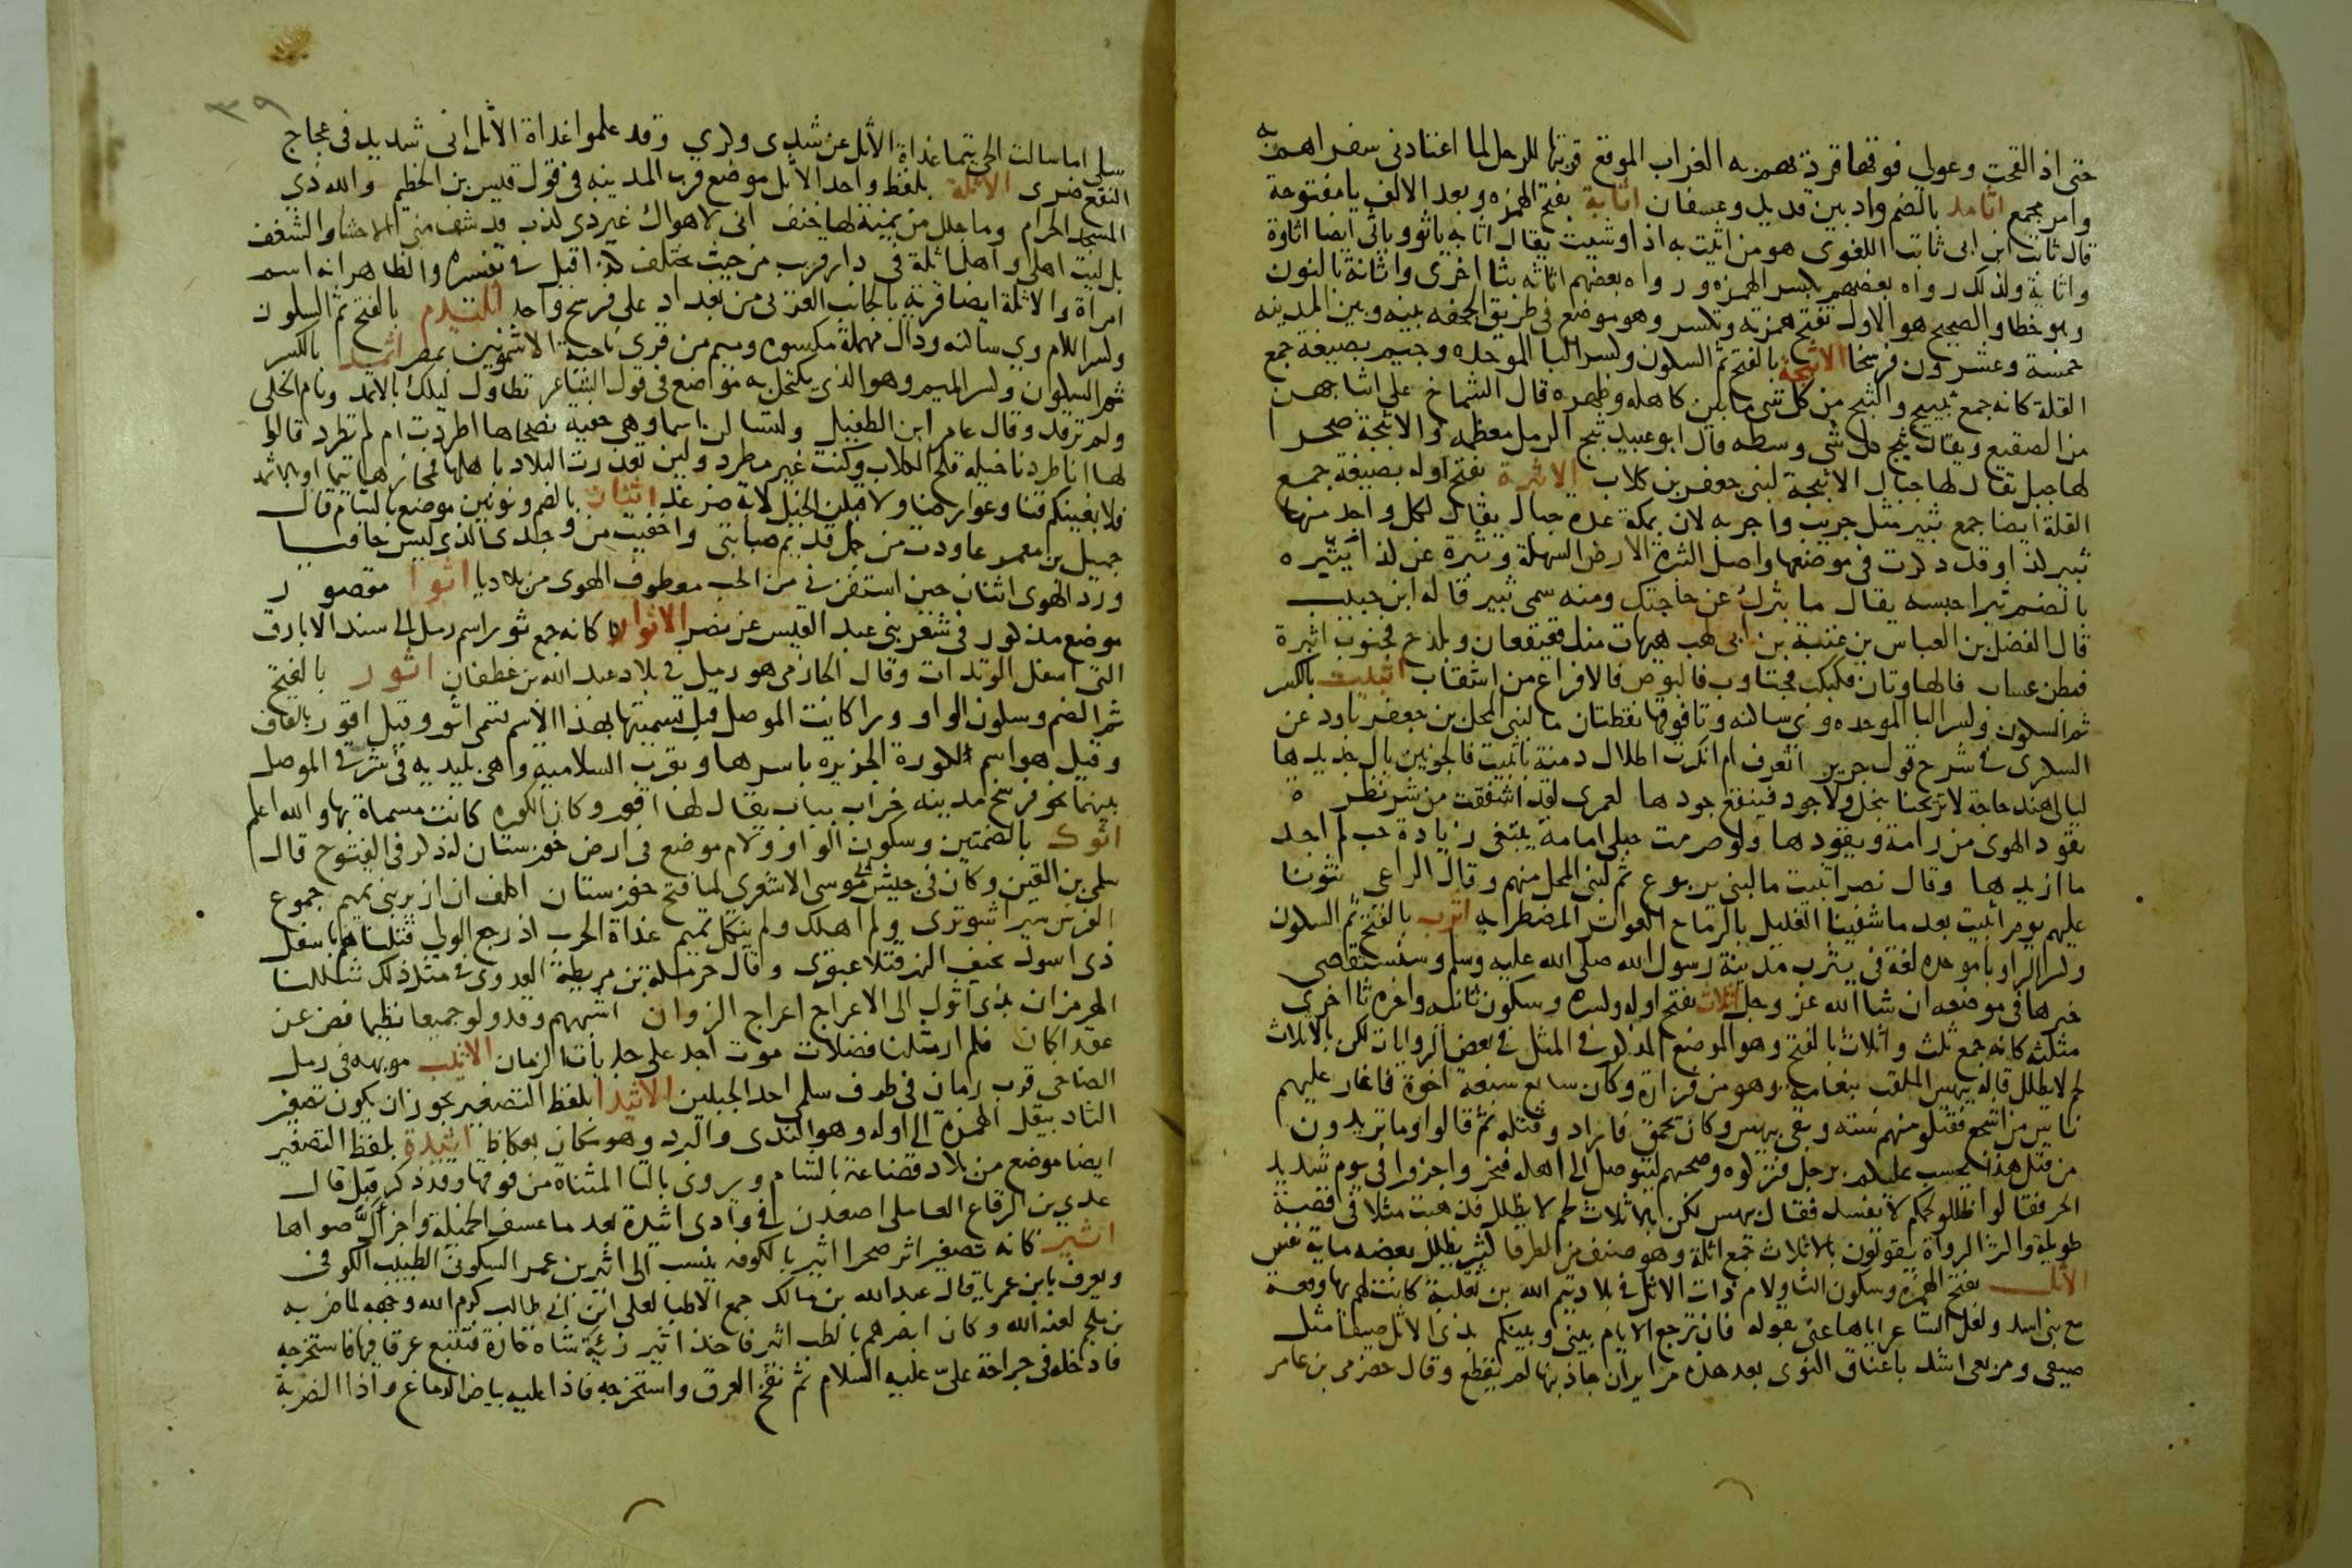 حتى اذا لقحت وعولي فوقها قردة يهم به الغراب الموقع قربتها للرحل لما اعتادني سفر اهم به
وامر مجمع اثامد بالضم واد بين قديد وعسفان اثاية بفتح الهمزه وبعد الالف يا مفتوحة
قال ثابت ابن ابى ثابت اللغوى هو من اثيت به اذا وشيت يقال اثا به ياثو وياثي ايضا اثاوة
واثاية ولذلك رواه بعضهم بكسر الهمزه ورواه بعضهم اثاثه بثا اخرى واثانة بالنون
وهو خطا والصحيح هو الاول بفتح همزته وتكسر وهو موضع في طريق الجحفه بينه وبين المدينه
خمسة وعشرون فرسخا الاثبجة بالفتح ثم السكون وكسر البا الموحده وجيم بصيغة جمع
القلة كانه جمع ثبيج والثبج من كل شى ما بين كاهله وظهره قال الشماخ على اثباجهن
من الصقيع ويقال ثبج كل شى وسطه قال ابو عبيد ثبج الرمل معظمه والاثبجة صحرا
لها جبل يقال لها جبال الاثبجة لبنى جعفر بن كلاب الاثبرة بفتح اوله بصيغة جمع
القلة ايضا جمع ثبير مثل جريب واجربه لان بمكة عدة جبال يقال لكل واحد منها
ثبير كذا وقد ذكرت في موضعها واصل الثبرة الارض السهلة وثبرة عن كذا يثبره
بالضم ثبرا حبسه يقال ما ثبرك عن حاجتك ومنه سمى ثبير قاله ابن حبيب
قال الفضل بن العباس بن عتبة بن ابى لهب هيهات منك قعيقعان وبلدح فجنوب اثبرة
فبطن عساب فالهاوتان فكبكب فجتاوب فالبوص فالافراع من اشقاب اثبيت بالكسر
ثم السكون وكسر البا الموحده وى ساكنه وتا فوقها نقطتان ما لبنى المحل بن جعفر باود عن
السكرى في شرح قول جرير اتعرف ام انكرت اطلال دمنة باثبيت فالجونين بال جديدها
ليالى هند حاجة لا تريحنا ببخل ولا جود فينفع جودها لعمرى لقد اشفقت من شر نظرة
تقود الهوى من رامة ويقودها ولو صرمت حبلى امامة تبتغى زيادة حب لم اجد
ما ازيدها وقال نصر اثبيت ما لبنى يربوع ثم لبنى المحل منهم وقال الراعي نثونا
عليهم يوم اثبيت بعد ما شفينا الغليل بالرماح العواتر المضطرابه اثرب بالفتح ثم السكون
وكسر الرا وبا موحده لغة في يثرب مدينة رسول الله صلى الله عليه وسلم وسنستقصى
خبرها في موضعه ان شا الله عز وجل اثلاث بفتح اوله وكسره وسكون ثانيه واخره ثا اخرى
مثلثه كانه جمع ثلث واثلاث بالفتح وهو الموضع المذكور في المثل في بعض الروايات لكن بالاثلاث
لحم لا يظلل قاله بيهس الملقب بنعامه وهو من فزارة وكان سابع سبعة اخوة فاغار عليهم
ناس من اشجع فقتلو منهم سته وبقى بيهس وكان يحمق فاراد وقتله ثم قالوا وما تريدون
من قتل هذا يحسب عليكم برجل فتركوه وصحبهم ليتوصل الى اهله فنحروا جزورا في يوم شديد
الحر فقالوا ظللو لحمكم لا يفسد فقال بيهس لكن بالاثلاث لحم لا يظلل فذهبت مثلا في قصة
طويلة واكثر الرواة يقولون بالاثلاث جمع اثلة وهو صنف من الطرفا كثير يظلل بعضه ماية نفس
الاثل بفتح الهمزه وسكون الثا ولام ذات الاثل في بلاد تيم الله بن ثعلبة كانت لهم بها وقعة
مع بنى اسد ولعل الشاعر اياها عنى بقوله فان ترجع الايام بيني وبينكم بذى الاثل صيفا مثل
صيفى ومربعى اشد باعناق النوى بعد هذه مراير ان جاذبتها لم تقطع وقال حضرمى بن عامر
٣٩
سلى اما سالت الحى تيما غداة الاثل عن شدى وكرى وقد علموا غداة الاثل انى شديد في عجاج
النقع ضرى الاثلة بلفظ واحد الاثل موضع قرب المدينه في قول قيس بن الخطيم والله ذي
المسجد الحرام وما جلل من يمنية لها خنف انى لاهواك غير ذى كذب قد شف منى الاحشا والشغف
بل ليت اهلى واهل اثلة في دار قريب من حيث يختلف كذا قيل في تفسيره والظاهر انه اسم
امراة والاثلة ايضا قرية بالجانب الغربى من بغداد على فرسخ واحد اثليدم بالفتح ثم السكون
وكسر اللام وى ساكنه ودال مهملة مكسوره وميم من قرى ناحية الاشمونين بمصر اثمد بالكسر
ثم السكون وكسر الميم وهو الذى يكتحل به مواضع في قول الشاعر تطاول ليلك بالاثمد ونام الخلى
ولم ترقد وقال عامر ابن الطفيل ولتسالن اسما وهى حفيه نصحاها اطردت ام لم تطرد قالوا
لها انا طردنا خيله قلح الكلاب وكنت غير مطرد ولين تعذرت البلاد باهلها فمجازها تيما او بالاثمد
فلا بغينكم قنا وعوارضا ولاقبلن الخيل لابة ضرغد اثنان بالضم ونونين موضع بالشام قال
جميل بن معمر وعاودت من جمل قديم صبابتى واخفيت من وجدى الذى ليس خافيا
ورد الهوى اثنان حين استفزنى من الحب معطوف الهوى من بلاديا اثوا مقصور
موضع مذكور في شعر بنى عبد القيس عن نصر الاثوار كانه جمع ثور اسم رمل الى سند الابارق
التى اسفل الوتدات وقال الحازمى هو رمل في بلاد عبد الله بن غطفان اثور بالفتح
ثم الضم وسكون الواو ورا كانت الموصل قبل تسميتها بهذا الاسم تسمى اثور وقيل اقور بالقاف
وقيل هو اسم كورة الجزيره باسرها وبقرب السلاميه وهى بليديه في شرقى الموصل
بينهما نحو فرسخ مدينه خراب يباب يقال لها اقور وكان الكوره كانت مسماة بها والله اعلم
اثول بالضمتين وسكون الواو ولام موضع في ارض خوزستان له ذكر في الفتوح قال
سلمى بن القين وكان في جيش ابى موسى الاشعرى لما فتح خوزستان اكلف ان ازير بنى تميم جموع
الفرس سيرا شوترى ولم اهلك ولم ينكل تميم غداة الحرب اذ رجع الولى قتلناهم باسفل
ذى اثول بخيف النهر قتلا عبقرى وقال حرملة بن مريطة العدوى في مثل ذلك شللنا
الهرمزان بذى اثول الى الاعراج اعراج الزوان اشبههم وقد ولو جميعا نظيما فض عن
عقد اكان فلم ار مثلنا فضلات موت اجد على جديات الزمان الاثيب مويهه في رمل
الضاحى قرب رمان في طرف سلمى احد الجبلين الاثيدا بلفظ التصغير يجوز ان يكون تصغير
الثاد بنقل الهمزة الى اوله وهو الندى والبرد وهو مكان بعكاظ اثيدة بلفظ التصغير
ايضا موضع من بلاد قضاعة بالشام ويروى بالتا المثناة من فوقها وقد ذكر قبل قال
عدى بن الرقاع العاملى اصعدن في وادى اثيدة بعد ما عسف الخميلة واحزال صواها
اثير كانه تصغير اثر صحرا اثير بالكوفه ينسب الى اثير بن عمر السكونى الطبيب الكوفى
ويعرف بابن عمريا قال عبد الله بن مالك جمع الاطبا لعلى ابن ابى طالب كرم الله وجهه لما ضربه
بن ملجم لعنه الله وكان ابصرهم بالطب اثير فاخذ اثير رئة شاة حارة فتتبع عرقا فيها فاستخرجه
فادخله في جراحة علىّ عليه السلام ثم نفخ العرق واستخرجه فاذا عليه بياض الدماغ واذا الضربة